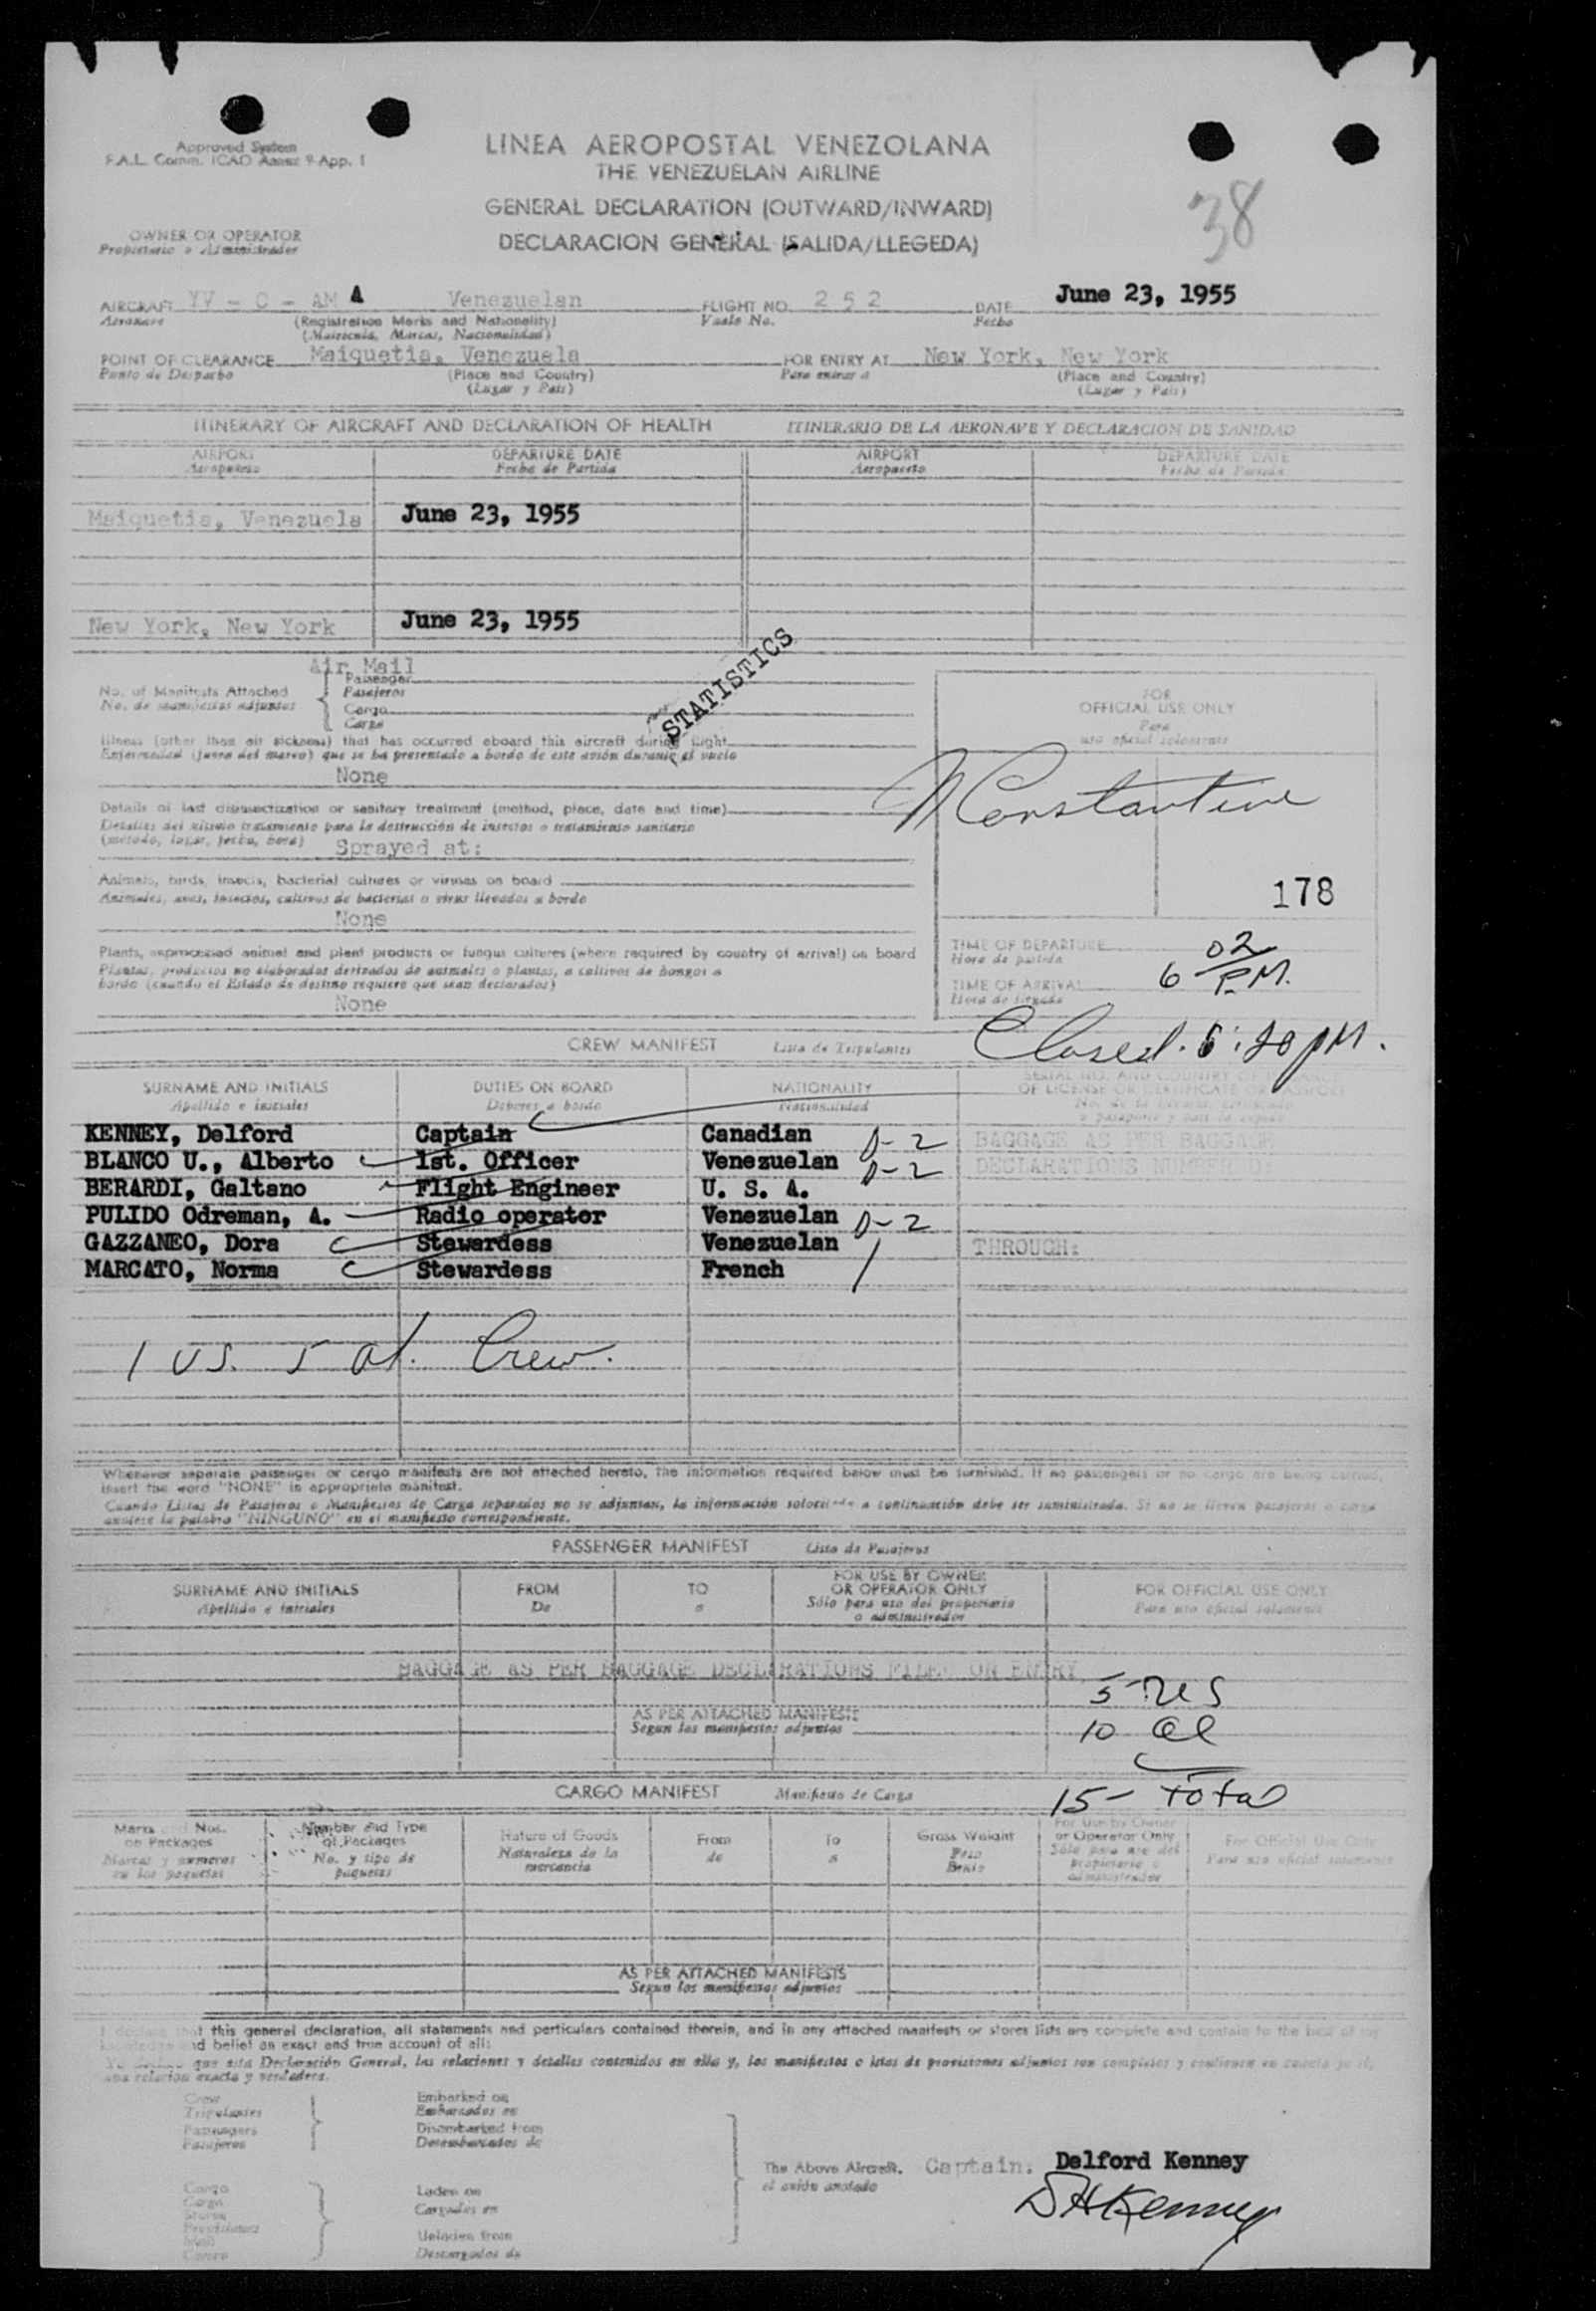 Approved System
F.A.L. Comm. ICAO Annex 9 App. 1
LINEA AEROPOSTAL VENEZOLANA
THE VENEZUELAN AIRLINE
GENERAL DECLARATION (OUTWARD/INWARD)
DECLARACION GENERAL (SALIDA/LLEGEDA)
38
OWNER OR OPERATOR
Propietario o Administrador
AIRCRAFT YV - C - AM A Venezuelan FLIGHT NO. 2 5 2 DATE June 23, 1955
Aeronave (Registration Marks and Nationality) Vuelo No. Fecha
(Matricula, Marcas, Nacionalidad)
POINT OF CLEARANCE Maiquetia, Venezuela FOR ENTRY AT New York, New York
Punto de Despacho (Place and Country) Para entrar a (Place and Country)
(Lugar y Pais) (Lugar y Pais)
ITINERARY OF AIRCRAFT AND DECLARATION OF HEALTH ITINERARIO DE LA AERONAVE Y DECLARACION DE SANIDAD
AIRPORT DEPARTURE DATE AIRPORT DEPARTURE DATE
Aeropuerto Fecha de Partida Aeropuerto Fecha de Partida
Maiquetia, Venezuela June 23, 1955
New York, New York June 23, 1955
Air Mail
Passenger
No. of Manifests Attached Pasajeros
No. de manifiestos adjuntos Cargo
Carga
STATISTICS
FOR
OFFICIAL USE ONLY
Para
uso oficial solamente
Illness (other than air sickness) that has occurred aboard this aircraft during flight
Enfermedad (fuera del mareo) que se ha presentado a bordo de este avión durante el vuelo
None
Details of last disinsectization or sanitary treatment (method, place, date and time)
Detalles del último tratamiento para la destrucción de insectos o tratamiento sanitario
(metodo, lugar, fecha, hora) Sprayed at:
Constantine
Animals, birds, insects, bacterial cultures or viruses on board
Animales, aves, insectos, cultivos de bacterias o virus llevados a bordo
None
178
Plants, unprocessed animal and plant products or fungus cultures (where required by country of arrival) on board
Plantas, productos no elaborados derivados de animales o plantas, o cultivos de hongos a
bordo (cuando el Estado de destino requiere que sean declarados)
None
TIME OF DEPARTURE
Hora de partida
TIME OF ARRIVAL 6 02 P.M.
Hora de llegada
Closed. 6:20 PM.
CREW MANIFEST Lista de Tripulantes
SURNAME AND INITIALS DUTIES ON BOARD NATIONALITY
Apellido e iniciales Deberes a bordo Nacionalidad
KENNEY, Delford Captain Canadian D-2 BAGGAGE AS PER BAGGAGE
BLANCO U., Alberto 1st. Officer Venezuelan D-2 DECLARATIONS NUMBERED:
BERARDI, Galtano Flight Engineer U. S. A.
PULIDO Odreman, A. Radio operator Venezuelan D-2
GAZZANEO, Dora Stewardess Venezuelan THROUGH:
MARCATO, Norma Stewardess French
1 US. 5 al. Crew.
Whenever separate passenger or cargo manifests are not attached hereto, the information required below must be furnished. If no passengers or no cargo are being carried,
insert the word "NONE" in appropriate manifest.
Cuando Listas de Pasajeros o Manifiestos de Carga separados no se adjuntan, la información a continuación debe ser suministrada. Si no se llevan pasajeros o carga
anótese la palabra "NINGUNO" en el manifiesto correspondiente.
PASSENGER MANIFEST Lista de Pasajeros
SURNAME AND INITIALS FROM TO FOR USE BY OWNER OR OPERATOR ONLY FOR OFFICIAL USE ONLY
Apellido e iniciales De a Sólo para uso del propietario o administrador Para uso oficial solamente
BAGGAGE AS PER BAGGAGE DECLARATIONS FILED ON ENTRY
5 US
AS PER ATTACHED MANIFESTS
Segun los manifiestos adjuntos
10 al
CARGO MANIFEST Manifiesto de Carga
15 - total
Marks and Nos. on Packages Number and Type of Packages Nature of Goods From To Gross Weight For Use by Owner or Operator Only For Official Use Only
Marcas y numeros en los paquetes No. y tipo de paquetes Naturaleza de la mercancia de a Peso Bruto Sólo para uso del propietario o administrador Para uso oficial solamente
AS PER ATTACHED MANIFESTS
Segun los manifiestos adjuntos
I declare that this general declaration, all statements and particulars contained therein, and in any attached manifests or stores lists are complete and contain to the best of my
knowledge and belief an exact and true account of all:
que esta Declaración General, las relaciones y detalles contenidos en ella y, los manifiestos o listas de provisiones adjuntos son completos y contienen
una relación exacta y verdadera.
Crew Embarked on
Tripulantes Embarcados en
Passengers Disembarked from
Pasajeros Desembarcados de
The Above Aircraft. Captain. Delford Kenney
el avión anotado
Cargo Laden on
Carga Cargados en
Stores
Provisiones Unladen from
Mail
Correo Descargados de
DHKenney